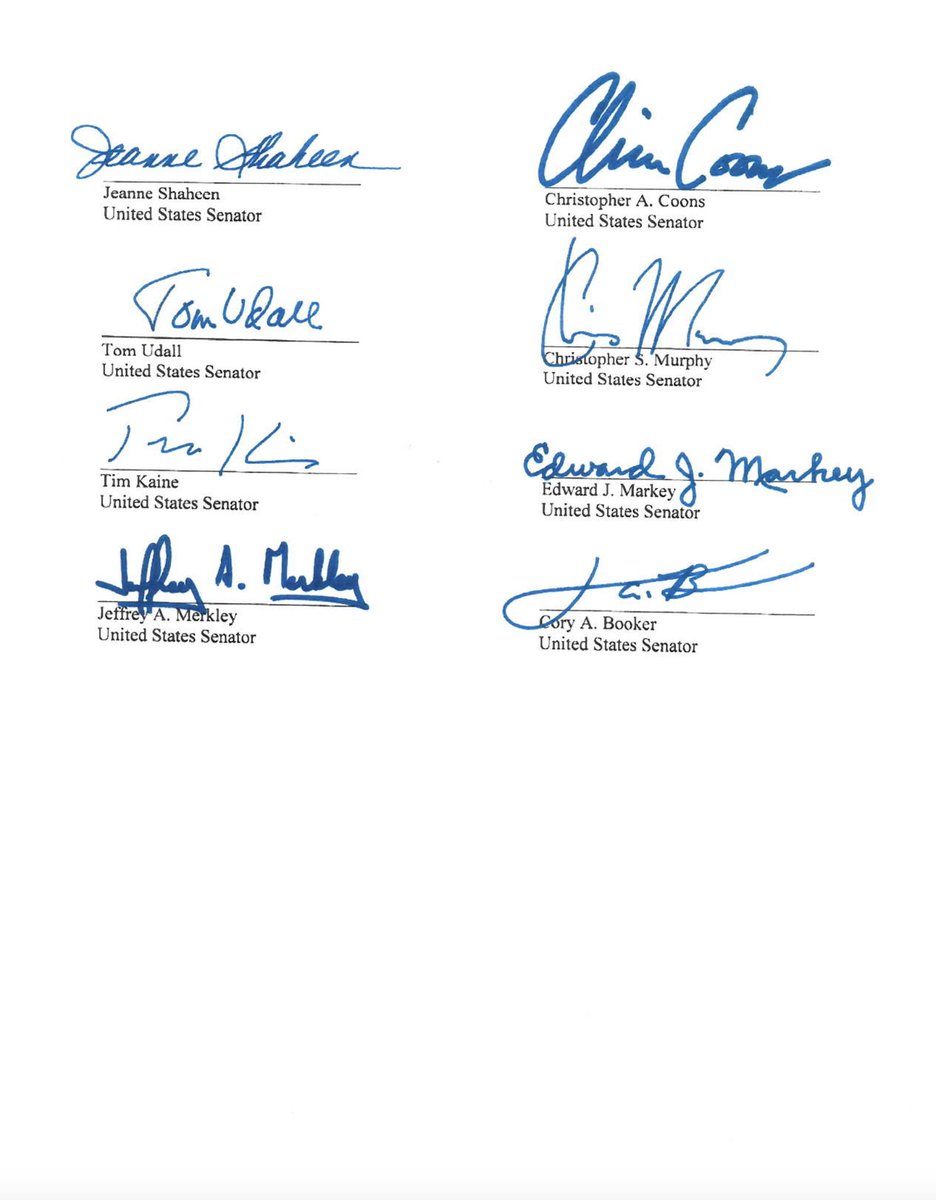 Jeanne Shaheen
Jeanne Shaheen
United States Senator
Chris Coons
Christopher A. Coons
United States Senator
Tom Udall
Tom Udall
United States Senator
Chris Murphy
Christopher S. Murphy
United States Senator
Tim Kaine
Tim Kaine
United States Senator
Edward J. Markey
Edward J. Markey
United States Senator
Jeffrey A. Merkley
Jeffrey A. Merkley
United States Senator
Cory A. Booker
United States Senator